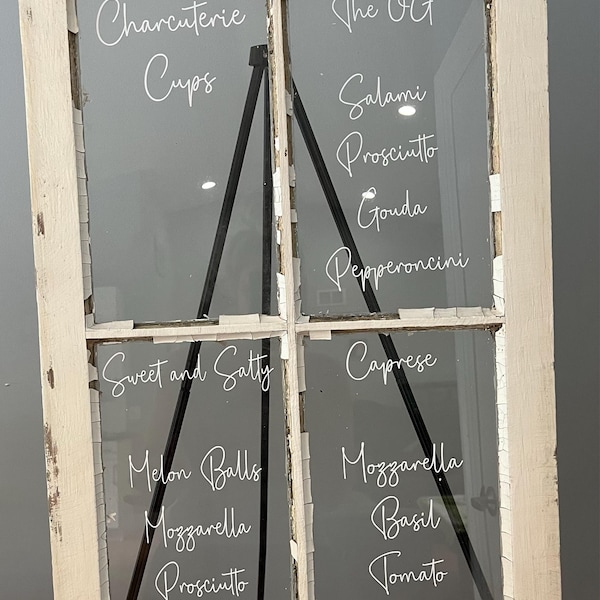 Charcuterie
Cups
The OG
Salami
Prosciutto
Gouda
Pepperoncini
Sweet and Salty
Melon Balls
Mozzarella
Prosciutto
Caprese
Mozzarella
Basil
Tomato